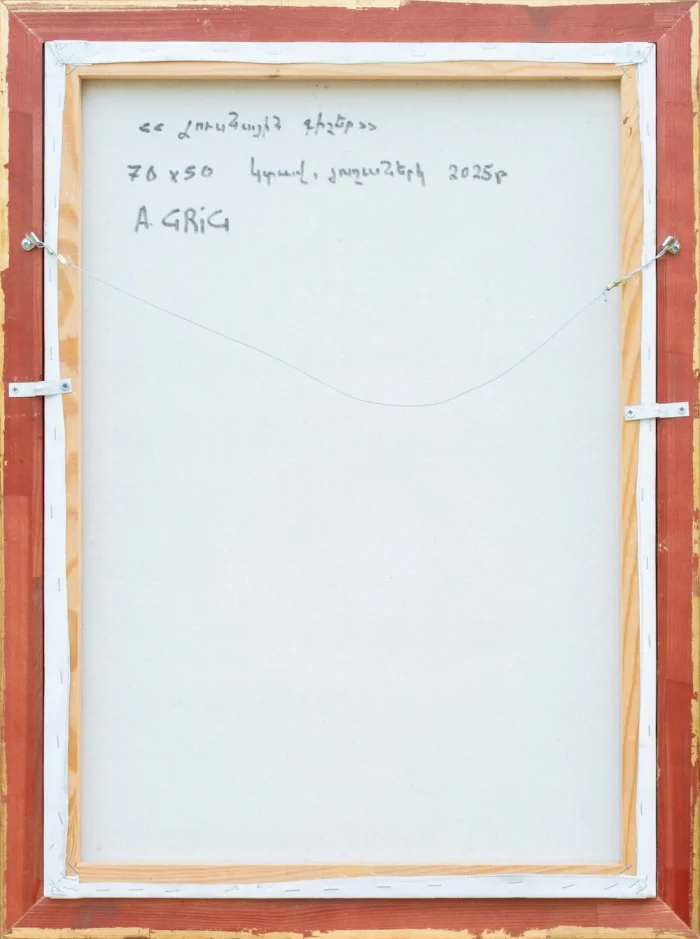 << Լուսնային գիշեր>>
70 x 50 կտավ, յուղաներկ 2025թ
A. GRiG